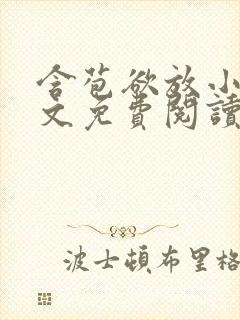 含苞欲放小
文免費閱讀
波士頓布里格